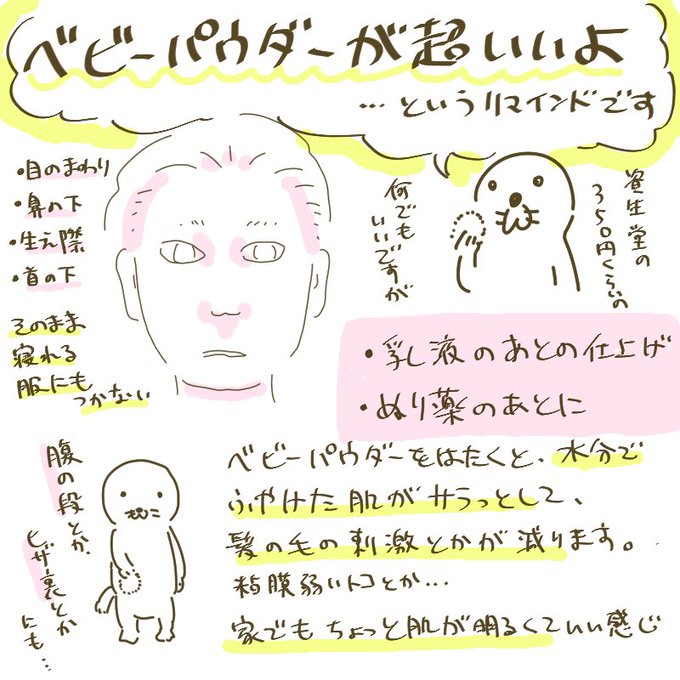 ベビーパウダーが超いいよ
…というリマインドです
・目のまわり
・鼻の下
・生え際
・首の下
そのまま
寝れる
服にも
つかない
資生堂の
350円くらいの
何でも
いいですが
・乳液のあとの仕上げ
・ぬり薬のあとに
ベビーパウダーをはたくと、水分で
ふやけた肌がサラっとして、
髪の毛の刺激とかが減ります。
粘膜弱いトコとか…
家でもちょっと肌が明るくていい感じ
腹の段とか、
ヒザ裏とか
にも…